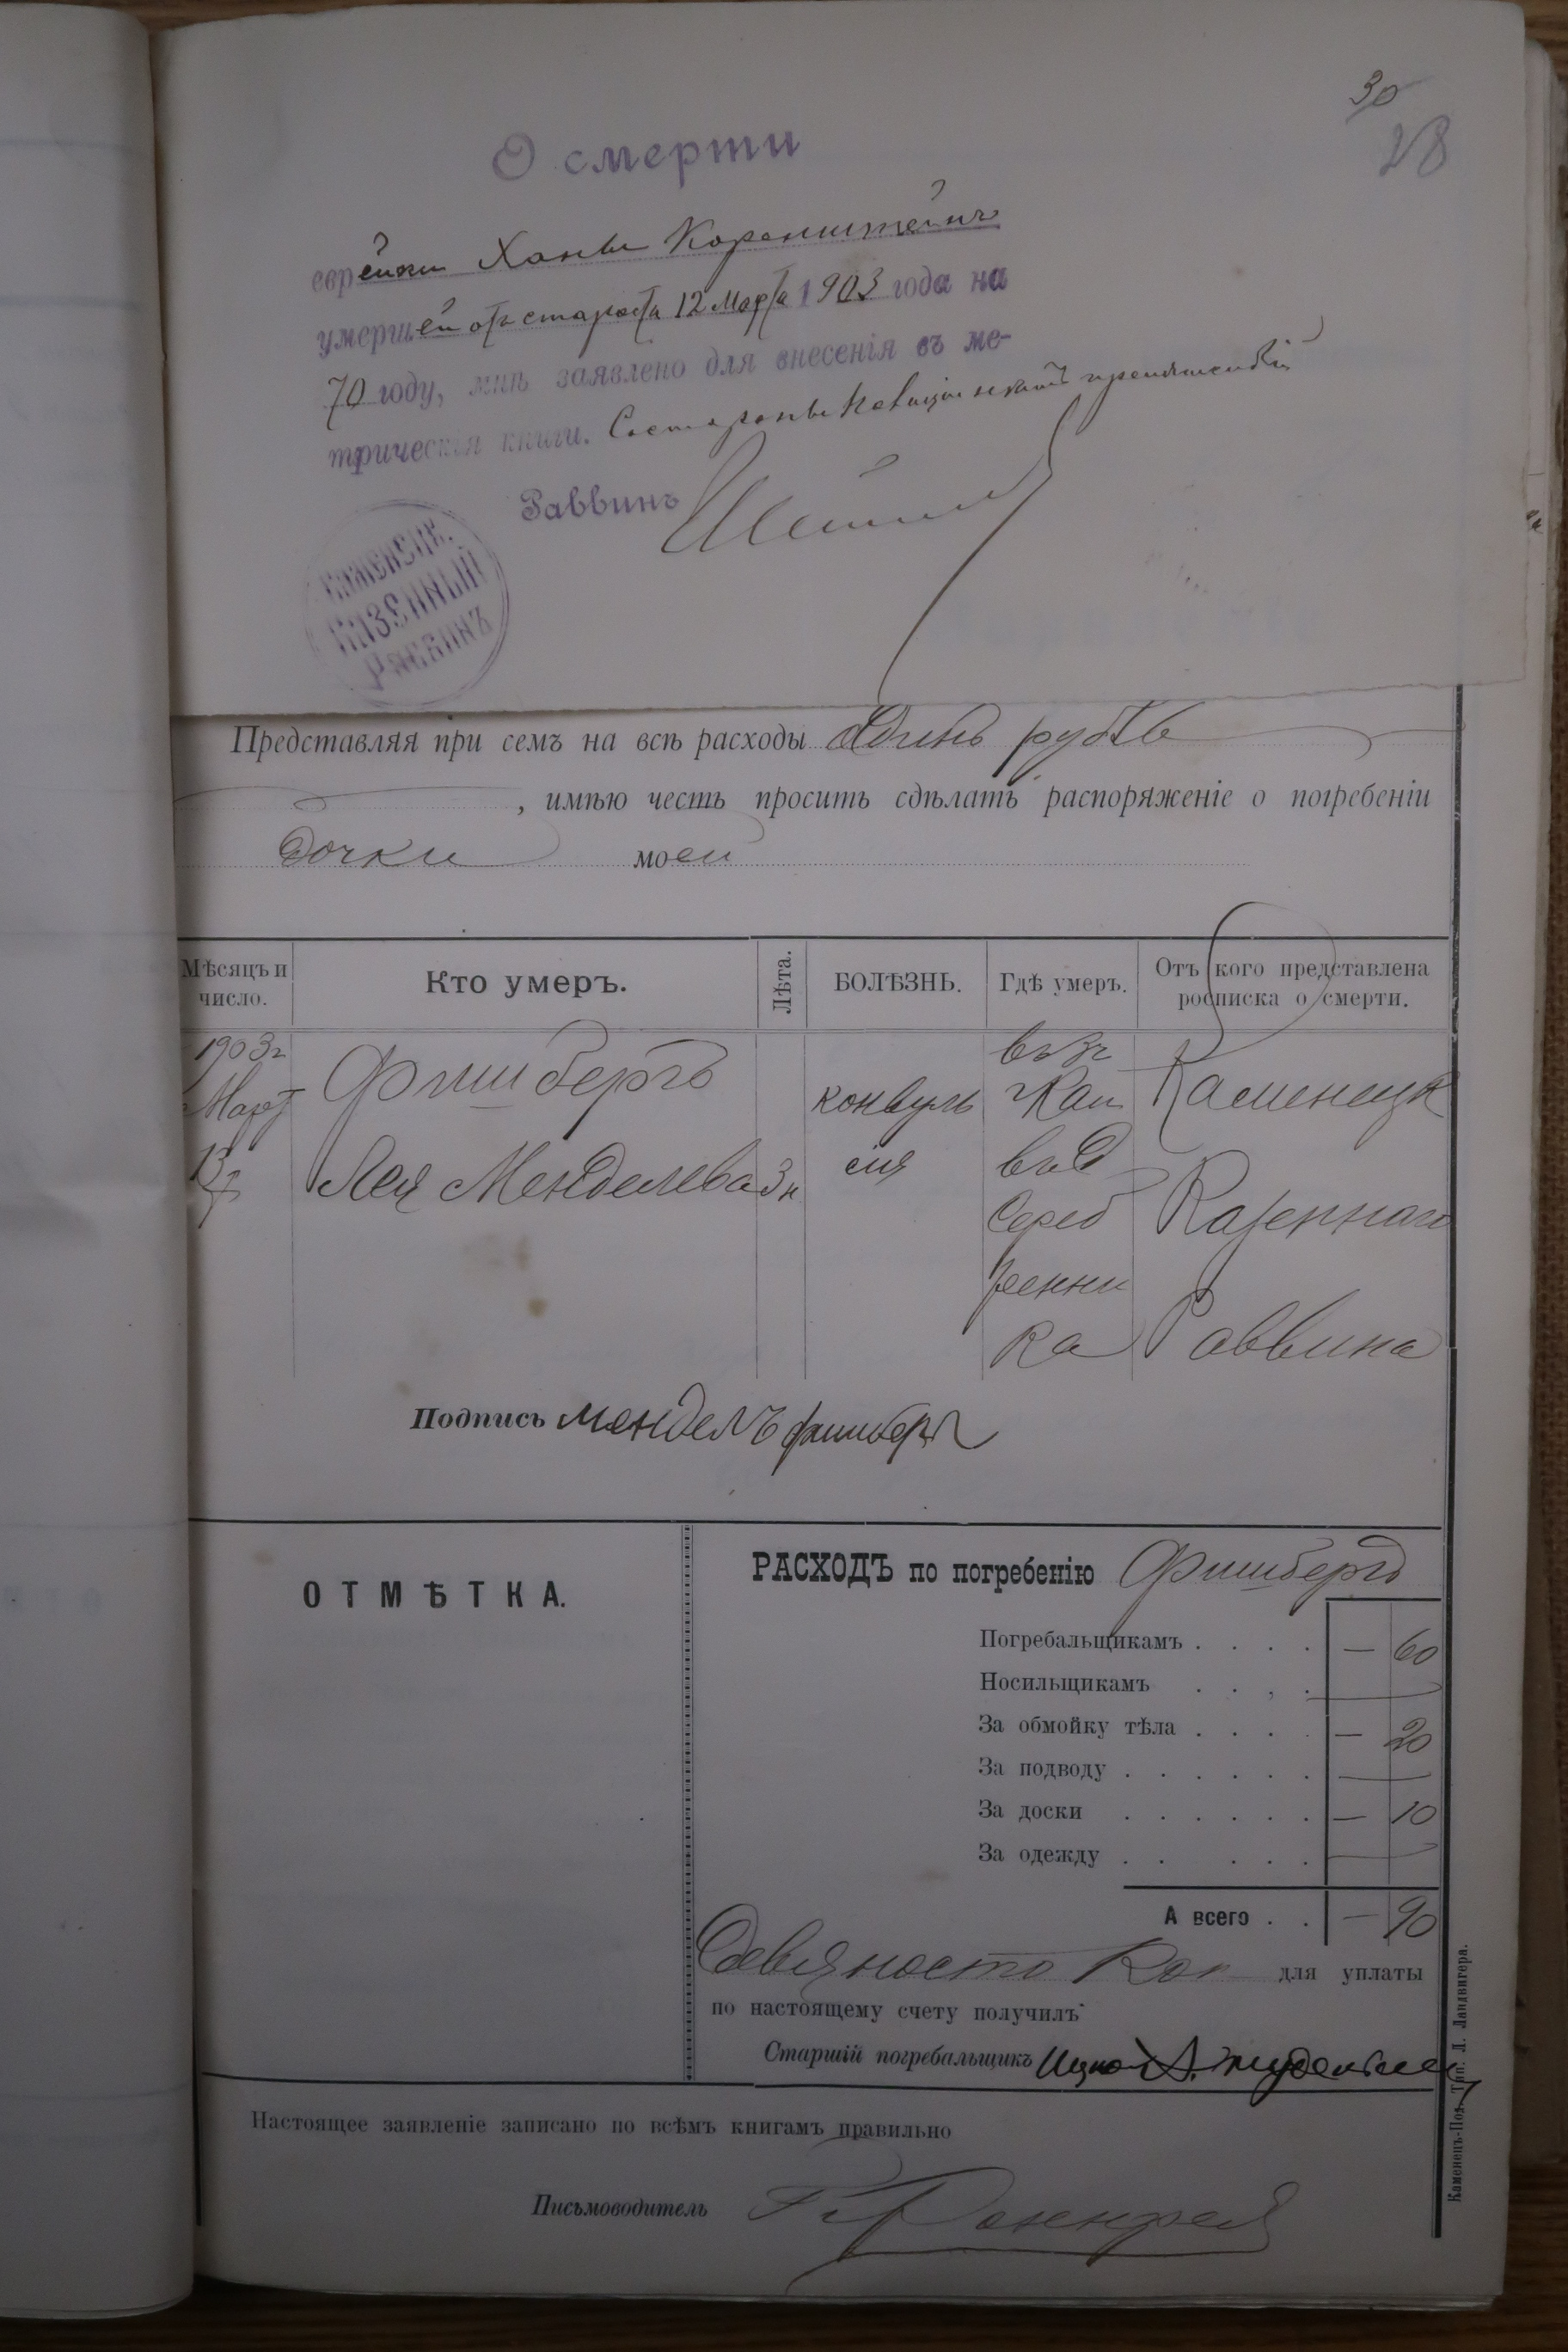 30
28
О смерти
еврейки Ханы Коренштейнъ
умершей отъ старости 12 Марта 1903 года на
70 году, мнѣ заявлено для внесенія въ ме-
трическія книги. Со стороны полиціи нѣтъ препятствій
Раввинъ
КАМЕНЕЦК.
КАЗЕННЫЙ
РАВВИНЪ
Представляя при семъ на всѣ расходы Одинъ рубль
, имѣю честь просить сдѣлать распоряженіе о погребеніи
дочки моей
Мѣсяцъ и число. Кто умеръ. Лѣта. БОЛѢЗНЬ. Гдѣ умеръ. Отъ кого представлена росписка о смерти.
1903 г Фишбергъ
Март Каменецк
конвуль
13 Лея Менделева 3 н сія въ д
Сереб Казеннаго
ренни
ка Раввина
Подпись Мендель Фишберг
ОТМѢТКА.
РАСХОДЪ по погребенію Фишбергъ
Погребальщикамъ . . . . — 60
Носильщикамъ . . , . —
За обмойку тѣла . . . . — 20
За подводу . . . . . . —
За доски . . . . . . — 10
За одежду . . . . . —
А всего . . — 90
Девяносто Коп для уплаты
по настоящему счету получилъ
Старшій погребальщикъ Ицко
Настоящее заявленіе записано по всѣмъ книгамъ правильно
Письмоводитель
Каменецъ-Под. Тип. Л. Ландвигера.